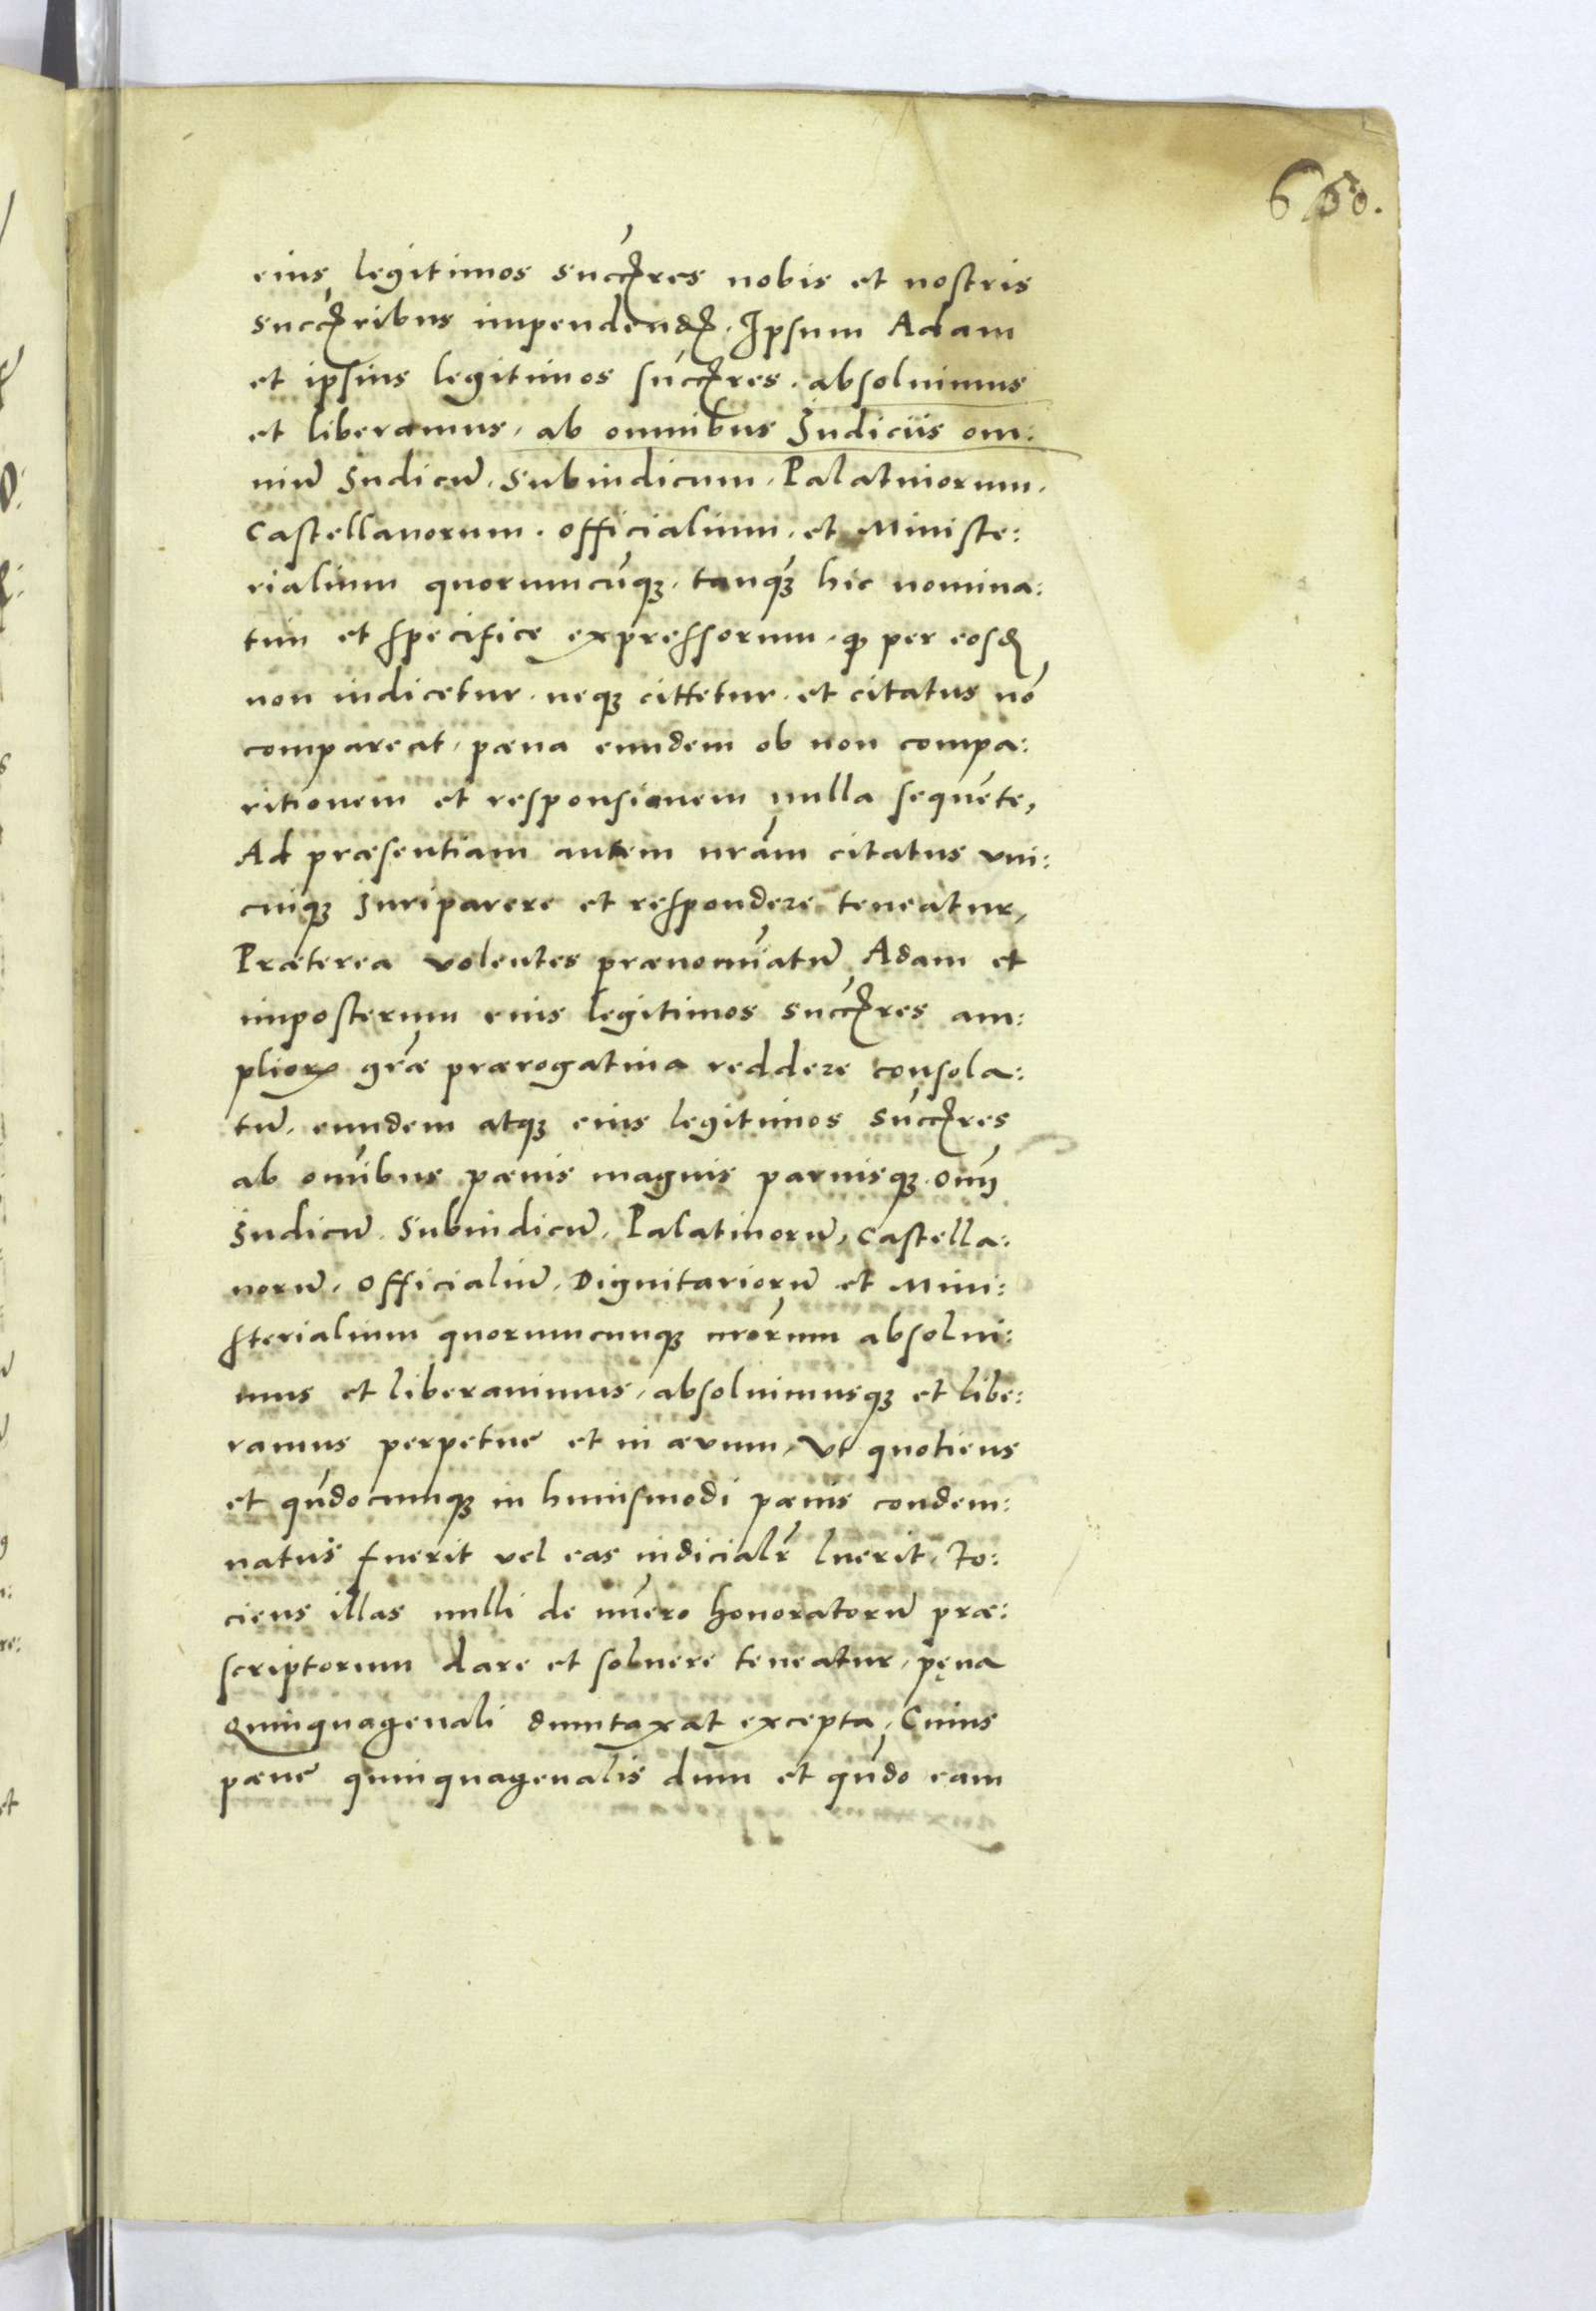 eius legitimos succ̃res nobis et nostris
succ̃ribus impendend̃. Ipsum Adam
et ipsius legitimos succ̃res. absoluimus
et liberamus, ab omnibus Iudiciis om:
niũ Iudicũ. Subiudicum. Palatinorum.
Castellanorum. officialium. et Ministe:
rialium quorumcũqꝫ. tanqꝫ hic nomina:
tim et specifice expressorum. ꝙ per eosd̃
non iudicetur. neqꝫ cittetur. et citatus nõ
compareat, pæna eundem ob non compa:
ritionem et responsionem nulla sequẽte,
Ad præsentiam autem nrãm citatus vni:
cuiqꝫ Iuriparere et respondere teneatur,
Præterea volentes prænomĩatũ Adam et
imposterum eius legitimos succ̃res am:
pliorꝭ grãæ prærogatiua reddere consola:
tũ. eundem atqꝫ eius legitimos succ̃res
ab omĩbus pænis magnis paruisqꝫ. omĩ
Iudicũ. Subiudicũ. Palatinorũ, Castella:
norũ. officialiũ. Dignitariorũ et Mini:
sterialium quorumcunqꝫ nrõrum absolui:
mus et liberauimus, absoluimusqꝫ et libe:
ramus perpetue et in æuum, Vt quotiens
et qũdocumqꝫ in huiusmodi pænis condem:
natus fuerit vel eas iudicialr̃ luerit, to:
ciens illas nulli de nũero honoratorũ præ:
scriptorum dare et soluere teneatur, pęna
Quinquagenali dumtaxat excepta, Cuius
pæne quinquagenalis dum et qũdo eam